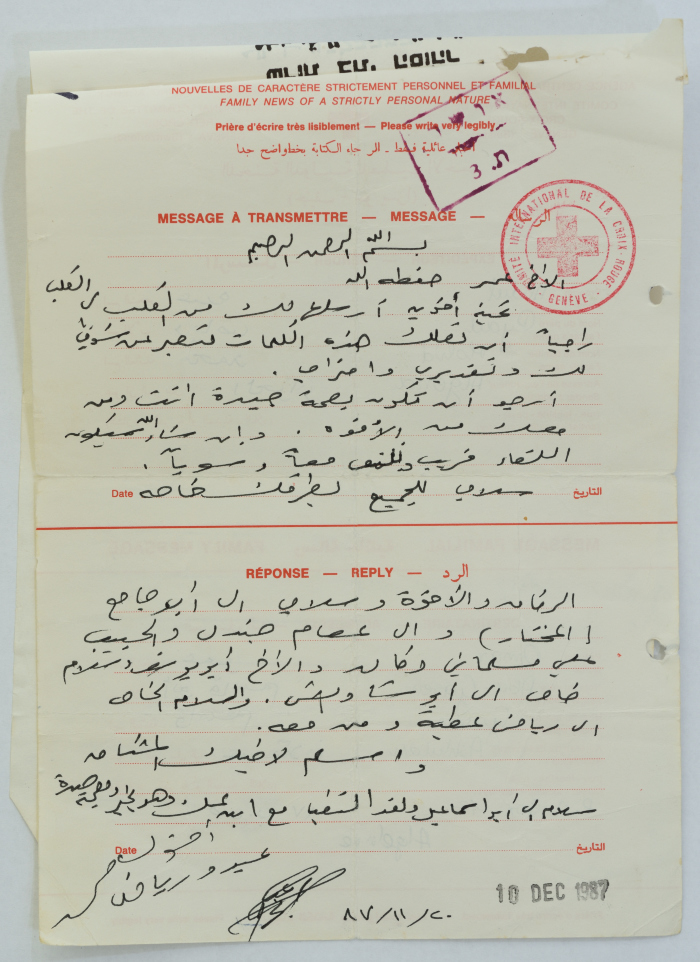 NOUVELLES DE CARACTÈRE STRICTEMENT PERSONNEL ET FAMILIAL
FAMILY NEWS OF A STRICTLY PERSONAL NATURE
Prière d'écrire très lisiblement — Please write very legibly
أخبار عائلية فقط ـ الرجاء الكتابة بخط واضح جدا
MESSAGE À TRANSMETTRE — MESSAGE —
COMITÉ INTERNATIONAL DE LA CROIX-ROUGE
GENÈVE
بسم الله الرحمن الرحيم
الأخ عمر حفظه الله
تحية أخوية أرسلها لك من القلب الى القلب
راجياً أن تصلك هذه الكلمات لتعبر عن شوقي
لك وتقديري واحترامي .
أرجو أن تكون بصحة جيدة انت ومن
معك من الأخوة . وإن شاء الله سيكون
اللقاء قريب معاً وسوياً .
سلامي للجميع بطرفك خاصة
Date
التاريخ
RÉPONSE — REPLY — الرد
والأخوة وسلامي الى أبو جامع
(المختار) والى عصام والحبيب
علي والأخ
خاص الى أبو والسلام الخاص
الى رياض عطية ومن معه .
واسلم لاخيك المشتاق
سلام الى أبو اسماعيل ولقد التقينا مع ابن عمك وهو بخير وبصحة جيدة
Date
التاريخ
10 DEC 1987
٨٧/١١/٢٠